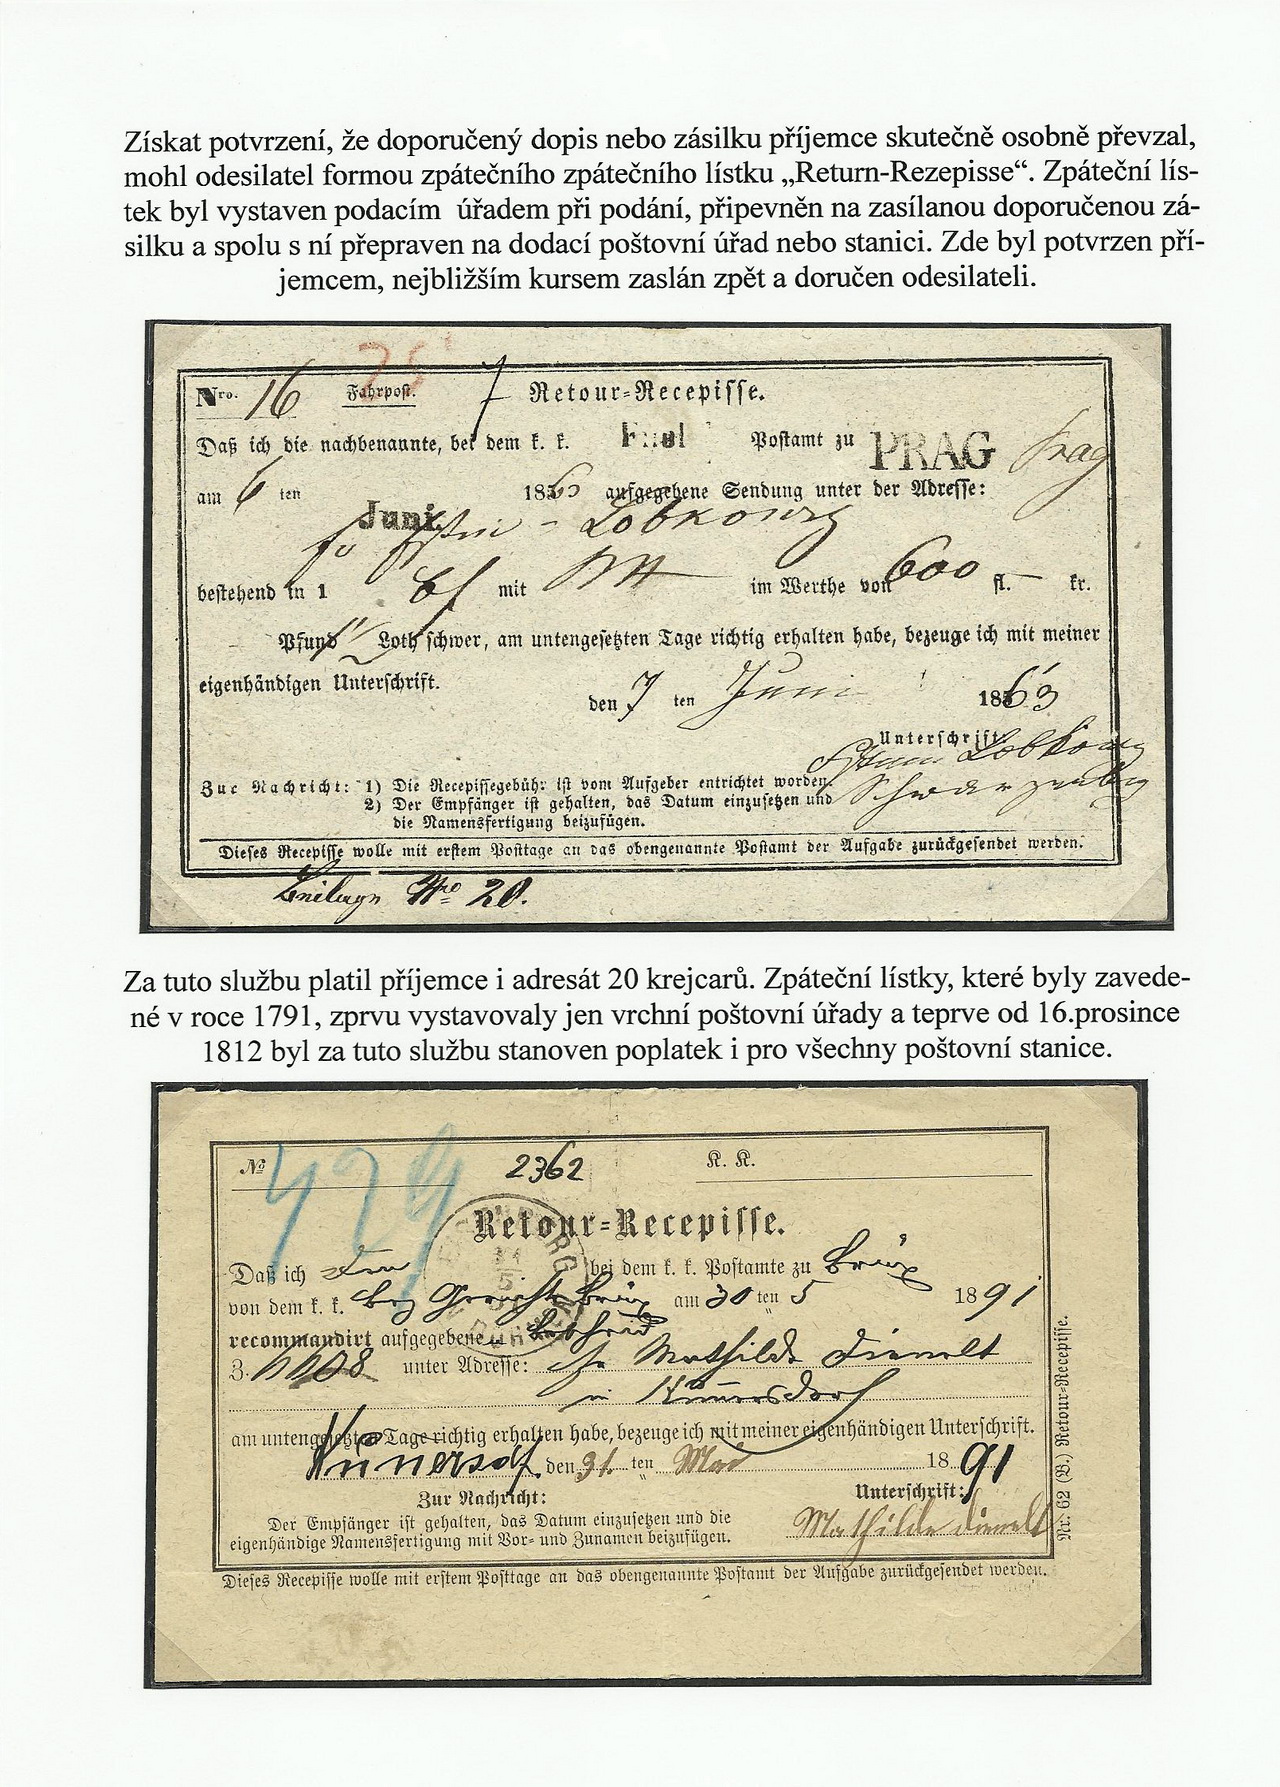 Získat potvrzení, že doporučený dopis nebo zásilku příjemce skutečně osobně převzal,
mohl odesilatel formou zpátečního zpátečního lístku „Return-Rezepisse“. Zpáteční lís-
tek byl vystaven podacím  úřadem při podání, připevněn na zasílanou doporučenou zá-
silku a spolu s ní přepraven na dodací poštovní úřad nebo stanici. Zde byl potvrzen pří-
jemcem, nejbližším kursem zaslán zpět a doručen odesilateli.
Nro. 16 Fahrpost. 7 Retour-Recepisse.
Daß ich die nachbenannte, bei dem k. k. Postamt zu PRAG Prag
am 6 ten Juni 186 aufgegebene Sendung unter der Adresse:
Lobkowitz
bestehend in 1 mit im Werthe von 600 fl. — kr.
Pfund Loth schwer, am untengesetzten Tage richtig erhalten habe, bezeuge ich mit meiner
eigenhändigen Unterschrift.
den 7 ten Juni 1863
Unterschrift
Lobkowitz
Zur Nachricht: 1) Die Recepissegebühr ist vom Aufgeber entrichtet worden.
2) Der Empfänger ist gehalten, das Datum einzusetzen und
die Namensfertigung beizufügen.
Dieses Recepisse wolle mit erstem Posttage an das obengenannte Postamt der Aufgabe zurückgesendet werden.
Beilage Nro 20.
Za tuto službu platil příjemce i adresát 20 krejcarů. Zpáteční lístky, které byly zavede-
né v roce 1791, zprvu vystavovaly jen vrchní poštovní úřady a teprve od 16.prosince
1812 byl za tuto službu stanoven poplatek i pro všechny poštovní stanice.
No 429 2362 K. K.
Retour-Recepisse.
Daß ich den bei dem k. k. Postamte zu Brüx
von dem k. k. Bez Gericht Brüx am 30 ten 5 1891
recommandirt aufgegebene
Z. unter Adresse: Mathilde Dienelt
in
am untengesetzten Tage richtig erhalten habe, bezeuge ich mit meiner eigenhändigen Unterschrift.
den 31. ten Mai 1891
Zur Nachricht: Unterschrift:
Der Empfänger ist gehalten, das Datum einzusetzen und die
eigenhändige Namensfertigung mit Vor- und Zunamen beizufügen.
Mathilde Dienelt
Dieses Recepisse wolle mit erstem Posttage an das obengenannte Postamt der Aufgabe zurückgesendet werden.
Nr. 62 (B.) Retour-Recepisse.